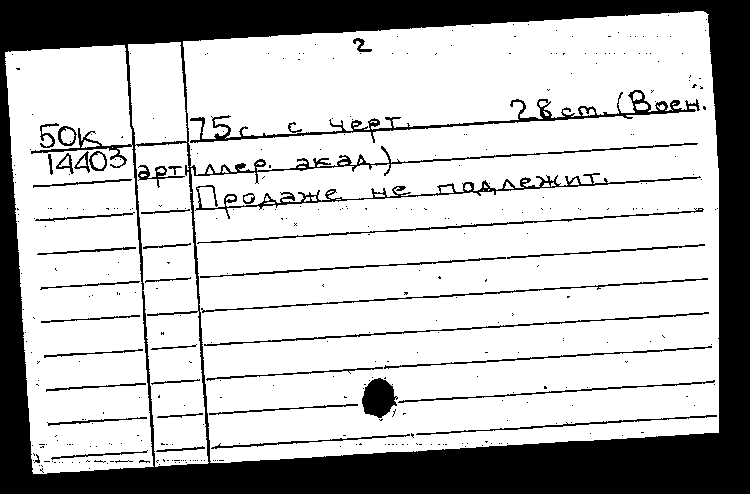 2
50к 75с. с черт. 28 cm. (Воен.
14403 артиллер. акад.).
Продаже не подлежит.